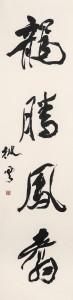 龍騰鳳翥